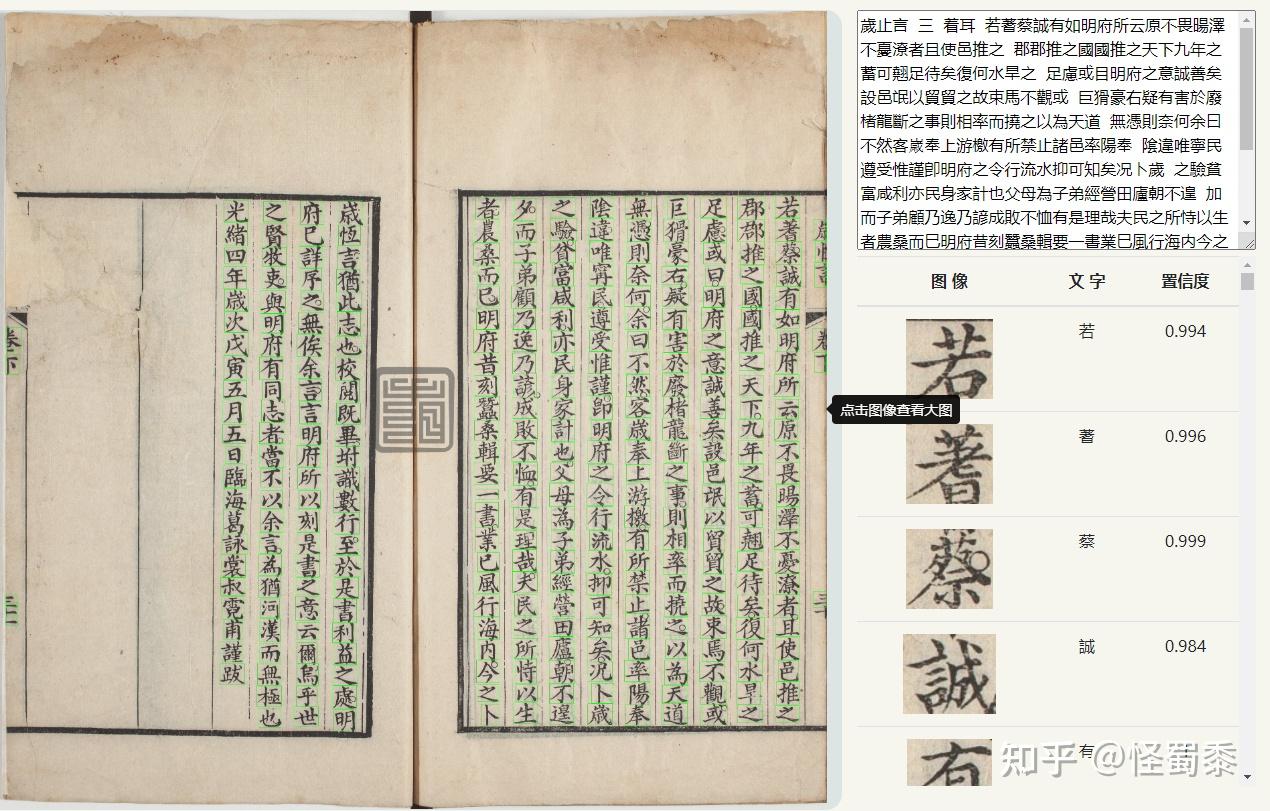 若蓍蔡誠有如明府所云原不畏暘澤不憂潦者且使邑推之
郡郡推之國國推之天下九年之蓄可翹足待矣復何水旱之
足慮或曰明府之意誠善矣設邑氓以貿貿之故束焉不觀或
巨猾豪右疑有害於廢楮龍斷之事則相率而撓之以為天道
無憑則奈何余曰不然客歲奉上游檄有所禁止諸邑率陽奉
陰違唯寧民遵受惟謹卽明府之令行流水抑可知矣况卜歲
之驗貧富咸利亦民身家計也父母為子弟經營田廬朝不遑
夕而子弟顧乃逸乃諺成敗不恤有是理哉夫民之所恃以生
者農桑而已明府昔刻蠶桑輯要一書業已風行海內今之卜
歲恆言猶此志也校閱既畢坿識數行至於是書利益之處明
府已詳序之無俟余言言明府所以刻是書之意云爾烏乎世
之賢牧吏與明府有同志者當不以余言為猶河漢而無極也
光緒四年歲次戊寅五月五日臨海葛詠裳叔霓甫謹跋
卷下
歲止言 三 着耳 若蓍蔡誠有如明府所云原不畏暘澤
不憂潦者且使邑推之 郡郡推之國國推之天下九年之
蓄可翹足待矣復何水旱之 足慮或目明府之意誠善矣
設邑氓以貿貿之故束馬不觀或 巨猾豪右疑有害於廢
楮龍斷之事則相率而撓之以為天道 無憑則奈何余曰
不然客嵗奉上游檄有所禁止諸邑率陽奉 陰違唯寧民
遵受惟謹卽明府之令行流水抑可知矣况卜歲 之驗貧
富咸利亦民身家計也父母為子弟經營田廬朝不遑 加
而子弟顧乃逸乃諺成敗不恤有是理哉夫民之所恃以生
者農桑而巳明府昔刻蠶桑輯要一書業巳風行海内今之
图像 文字 置信度
若 若 0.994
点击图像查看大图
蓍 蓍 0.996
蔡 蔡 0.999
誠 誠 0.984
有 有
知乎 @怪蜀黍